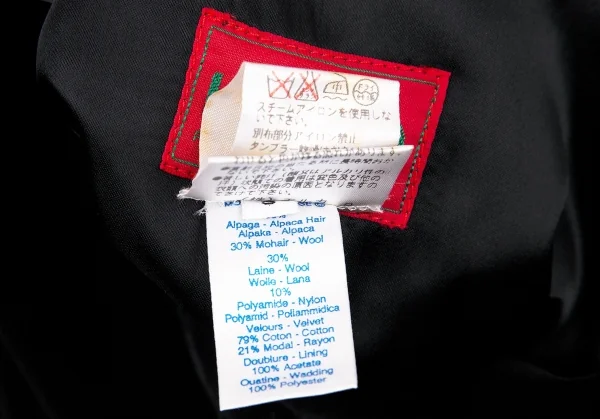 スチームアイロンを使用しな
いで下さい。
別布部分アイロン禁止
タンブラー
の着用は変色及び他の
衣類への汚染の原因となりますの
下さい。
Alpaga - Alpaca Hair
Alpaka - Alpaca
30% Mohair - Wool
30%
Laine - Wool
Wolle - Lana
10%
Polyamide - Nylon
Polyamid - Poliammidica
Velours - Velvet
79% Coton - Cotton
21% Modal - Rayon
Doublure - Lining
100% Acetate
Ouatine - Wadding
100% Polyester